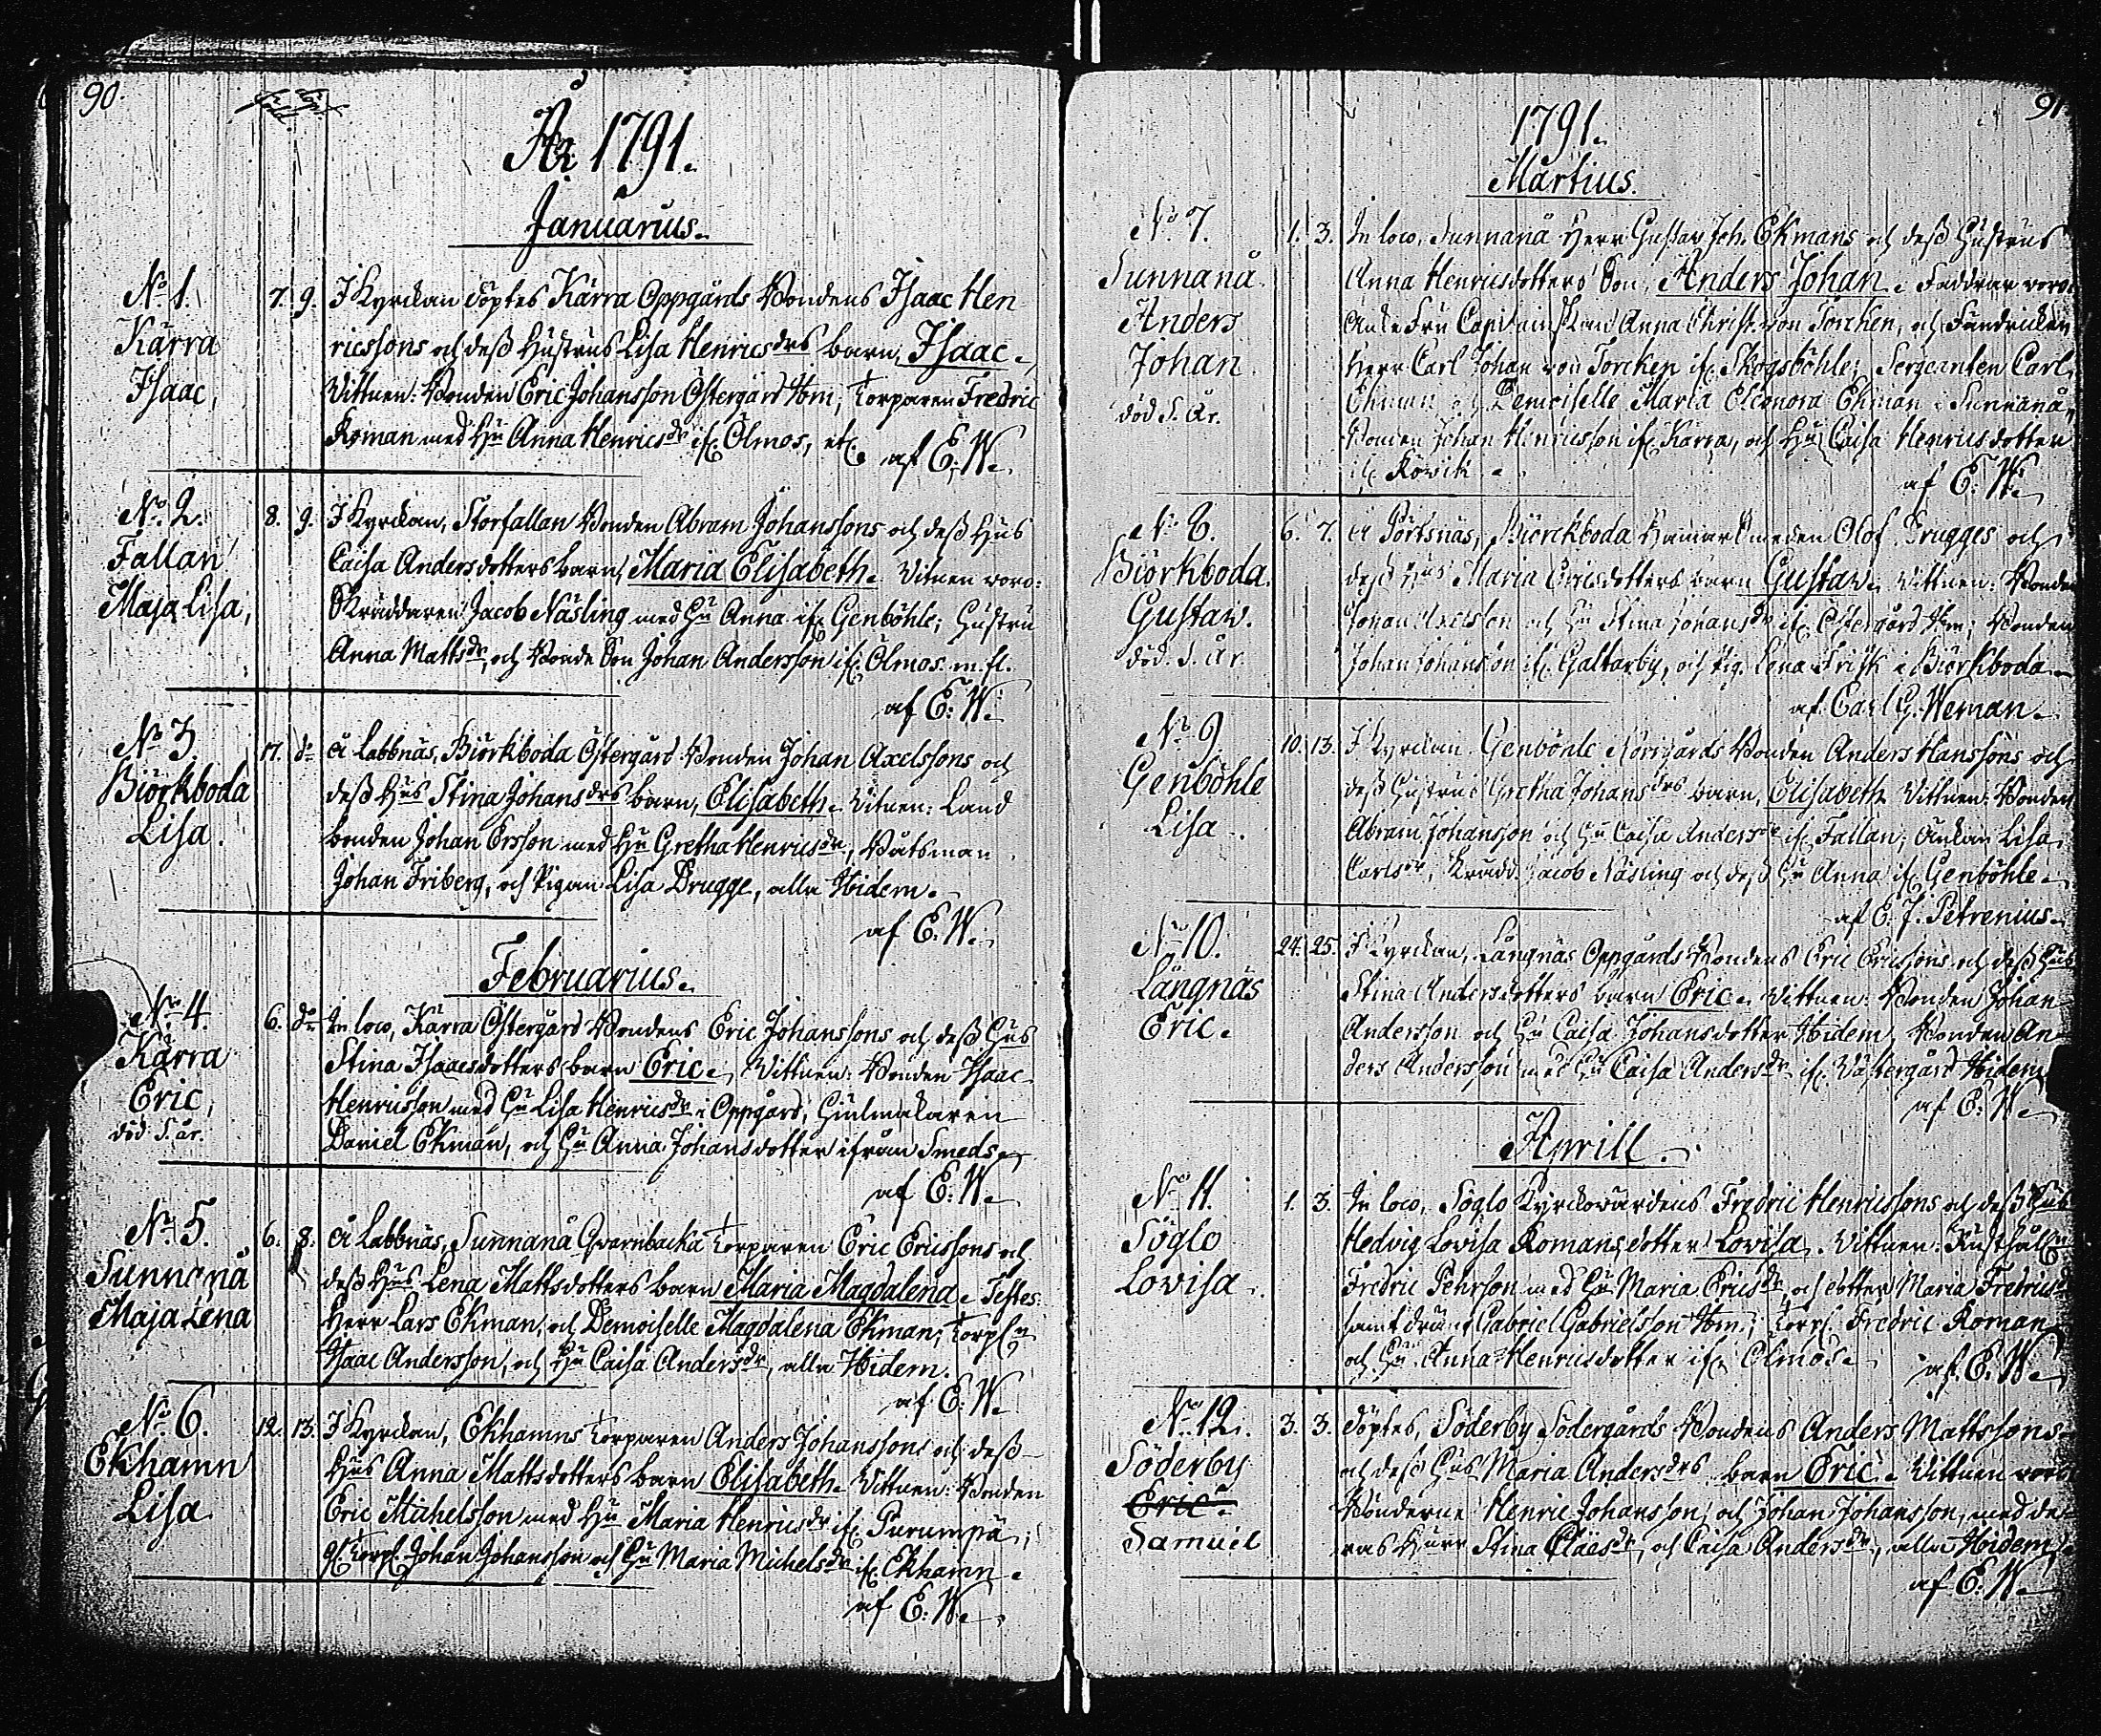 90.
Född. Döpt.
År 1791.
Januarius.
No 1. Kärra Isaac,
7. 9. I Kyrckan döptes Kärra Oppgårds Bondens Isaac Hen
ricssons och dess Hustrus Lisa Henricsdrs barn, Isaac.
Vittnen: Bonden Eric Johansson Östergård Ibm; torparen Fredric
Roman med Hu Anna Henricsdr if. Ölmos, etc. af E. W.
No 2. Fallan Maja Lisa,
8. 9. I Kyrckan, Storfallan Bonden Abram Johanssons och dess Hus
Caisa Andersdotters barn, Maria Elisabeth. Vitnen woro:
Skräddaren Jacob Näsling med Hu Anna if. Genböhle; Hustru
Anna Mattsdr, och Bonde Son Johan Andersson if. Ölmos. m. fl.
af E. W.
No 3. Biörkboda Lisa.
17. do å Labbnäs, Biörkboda Östergård Bonden Johan Axelssons och
dess Hus Stina Johansdrs barn, Elisabeth. Vitnen: Land
bonden Johan Ersson med Hu Gretha Henricsdr, Båtsman
Johan Friberg, och Pigan Lisa Brugge, alla Ibidem.
af E. W.
Februarius.
No 4. Kärra Eric, död S. år.
6. do In loco, Kärra Östergård Bondens Eric Johanssons och dess Hus
Stina Isaacsdotters barn Eric. Vittnen: Bonden Isaac
Henricsson med Hu Lisa Henricsdr i Oppgård, Hiulmakaren
Daniel Ekman, och Hu Anna Johansdotter ifrån Smeds.
af E. W.
No 5. Sunnanå Maja Lena
6. 8. å Labbnäs, Sunnanå Qvarnbacka torparen Eric Ericssons och
dess Hus Lena Mattsdotters barn Maria Magdalena. Testes:
Herr Lars Ekman, och Demoiselle Magdalena Ekman; torpn
Isaac Andersson, och Hu Caisa Andersdr, alla Ibidem.
af E. W.
No 6. Ekhamn Lisa
12. 13. I Kyrckan, Ekhamns torparen Anders Johanssons och dess
Hus Anna Mattsdotters barn Elisabeth. Vittnen: Bonden
Eric Michelsson med Hu Maria Henricsdr if. Purumpä;
torp. Johan Johansson och Hu Maria Michelsdr if. Ekhamn.
af E. W.
91
1791.
Martius.
No 7. Sunnanå Anders Johan. död S. år.
1. 3. In loco, Sunnanå Herr Gustav Joh. Ekmans och dess Hustrus
Anna Henricsdotters Son, Anders Johan. Faddrar woro:
Enke Fru Capitainskan Anna Christ. von Torcken, och Fendricken
Herr Carl Johan von Torcken if. Skogsböhle; Sergeanten Carl
Ekman och Demoiselle Maria Eleonora Ekman i Sunnanå,
Bonden Johan Henricsson if. Kärra, och Hu Caisa Henricsdotter
if. Rövik.
af E. W.
No 8. Biörkboda. Gustaw. död. S. år.
6. 7. å Pörtsnäs, Biörckboda Hamarsmeden Olof Brugges och
dess Hus Maria Ericsdotters barn Gustaw. Vittnen: Bonden
Johan Axelsson och Hu Stina Johansdr if. Östergård Ibm; Bonden
Johan Johansson if. Galtarby, och Pig. Lena Frisk i Biörkboda.
af Carl G. Weman.
No 9. Genböhle Lisa.
10. 13. I Kyrckan Genböhle Norrgårds Bonden Anders Hanssons och
dess Hustrus Gretha Johansdrs barn, Elisabeth. Vittnen: Bonden
Abram Johansson och Hu Caisa Andersdr if. Fallan; Änkan Lisa
Carlsdr, Krädd. Jacob Näsling och dess Hu Anna if. Genböhle.
af E. J. Petrenius.
No 10. Långnäs Eric.
24. 25. I Kyrckan, Långnäs Oppgårds Bondens Eric Ericssons och dess Hus
Stina Andersdotters barn Eric. Vittnen: Bonden Johan
Andersson och Hu Caisa Johansdotter Ibidem, Bonden An-
ders Andersson med Hu Caisa Andersdr if. Västergård Ibidem
af E. W.
Aprill.
No 11. Söglo Lovisa.
1. 3. In loco, Söglo Kyrckowärdens Fredric Henricssons och dess Hus
Hedvig Lovisa Romans dotter Lovisa. Vittnen: Rusthålln
Fredric Pehrson med Hu Maria Ericsdr, och dotter Maria Fredricsdr
samt dräng Gabriel Gabrielsson Ibm; torp. Fredric Roman
och Hu Anna Henricsdotter if. Ölmos. af E. W.
No 12. Söderby Eric. Samuel
3. 3. döptes, Söderby Södergårds Bondens Anders Mattssons
och dess Hus Maria Andersdrs barn Eric. Vittnen woro
Bönderne Henric Johansson, och Johan Johansson, med de-
ras Hurr Stina Claesdr, och Caisa Andersdr, alla Ibidem.
af E. W.